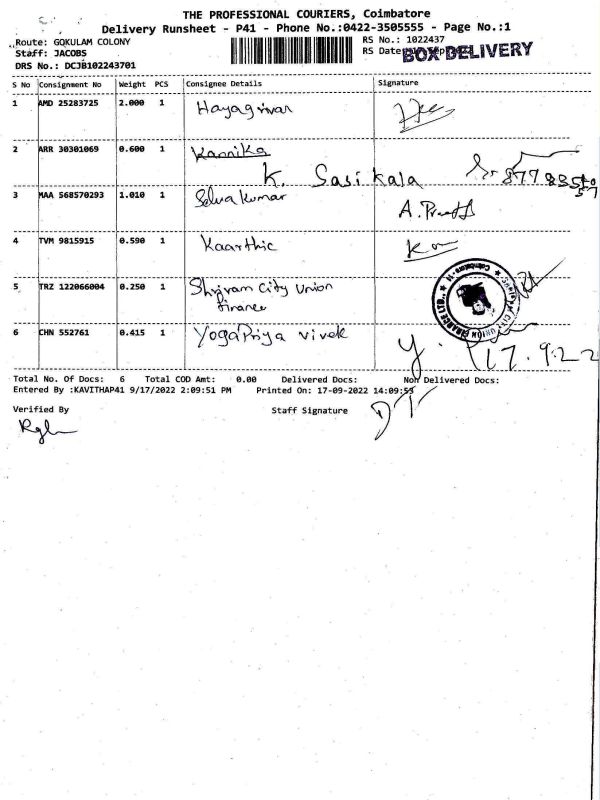 THE PROFESSIONAL COURIERS, Coimbatore
Delivery Runsheet - P41 - Phone No.:0422-3505555 - Page No.:1
Route: GOKULAM COLONY RS No.: 1022437
Staff: JACOBS RS Date
BOX DELIVERY
DRS No.: DCJB102243701
S No Consignment No Weight PCS Consignee Details Signature
1 AMD 25283725 2.000 1 Hayagrivar
2 ARR 30301069 0.600 1 Kannika
K. Sasi kala
3 MAA 568570293 1.010 1 Selvakumar
4 TVM 9815915 0.590 1 Kaarthic
5 TRZ 122066004 0.250 1 Shriram City Union
finance
6 CHN 552761 0.415 1 YogaPriya vivek
17.9.22
Total No. Of Docs: 6 Total COD Amt: 0.00 Delivered Docs: Non Delivered Docs:
Entered By :KAVITHAP41 9/17/2022 2:09:51 PM Printed On: 17-09-2022 14:09:53
Verified By Staff Signature